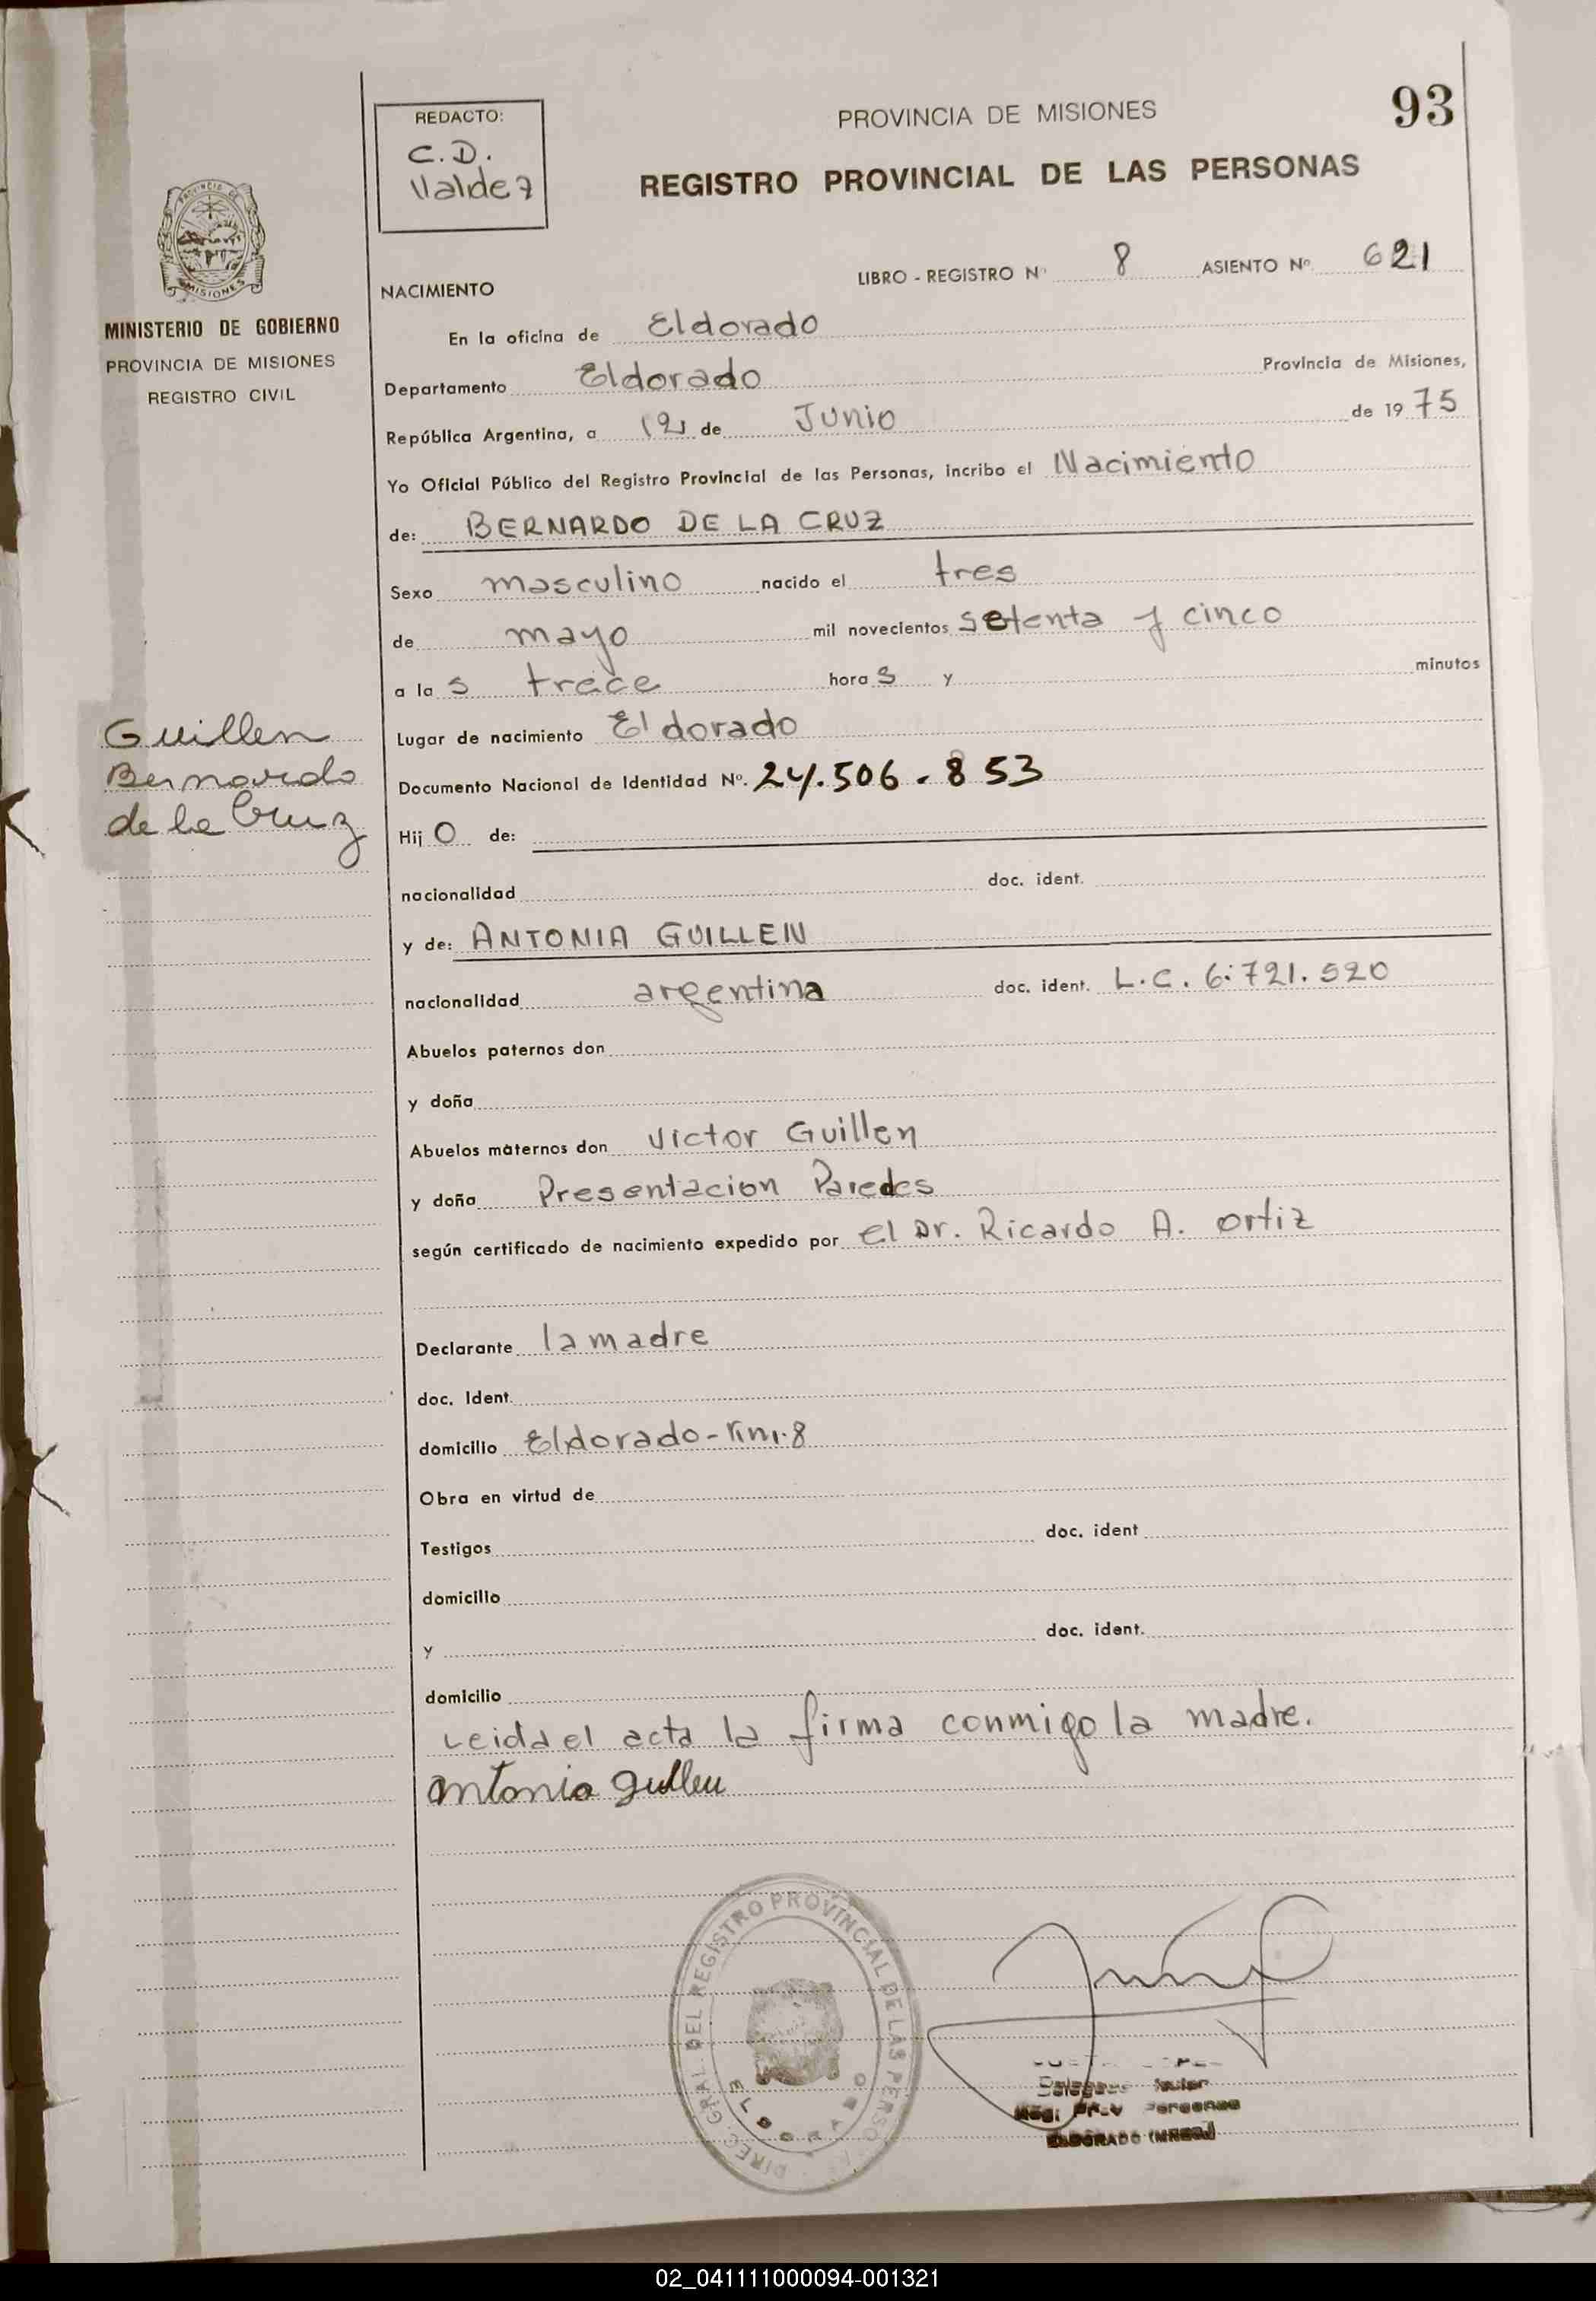 93
REDACTO:
C.D.
Valdez
PROVINCIA DE MISIONES
REGISTRO PROVINCIAL DE LAS PERSONAS
PROVINCIA DE
MISIONES
MINISTERIO DE GOBIERNO
PROVINCIA DE MISIONES
REGISTRO CIVIL
LIBRO - REGISTRO Nº 8 ASIENTO Nº 621
NACIMIENTO
En la oficina de Eldorado
Departamento Eldorado Provincia de Misiones,
República Argentina, a 12 de Junio de 1975
Yo Oficial Público del Registro Provincial de las Personas, incribo el Nacimiento
de: BERNARDO DE LA CRUZ
Sexo masculino nacido el tres
de mayo mil novecientos setenta y cinco
a las trece horas y minutos
Guillen
Bernardo
de la Cruz
Lugar de nacimiento Eldorado
Documento Nacional de Identidad Nº. 24.506.853
Hijo de:
nacionalidad doc. ident.
y de: ANTONIA GUILLEN
nacionalidad argentina doc. ident. L.C. 6.721.520
Abuelos paternos don
y doña
Abuelos maternos don Victor Guillen
y doña Presentacion Paredes
según certificado de nacimiento expedido por el Dr. Ricardo A. Ortiz
Declarante la madre
doc. Ident.
domicilio Eldorado-Km.8
Obra en virtud de
Testigos doc. ident
domicilio
y doc. ident.
domicilio
Leida el acta la firma conmigo la madre.
Antonia Guillen
DIREC. GRAL. DEL REGISTRO PROVINCIAL DE LAS PERSO
ELDORADO
Reg. Prov Personas
ELDORADO (MNES)
02_041111000094-001321